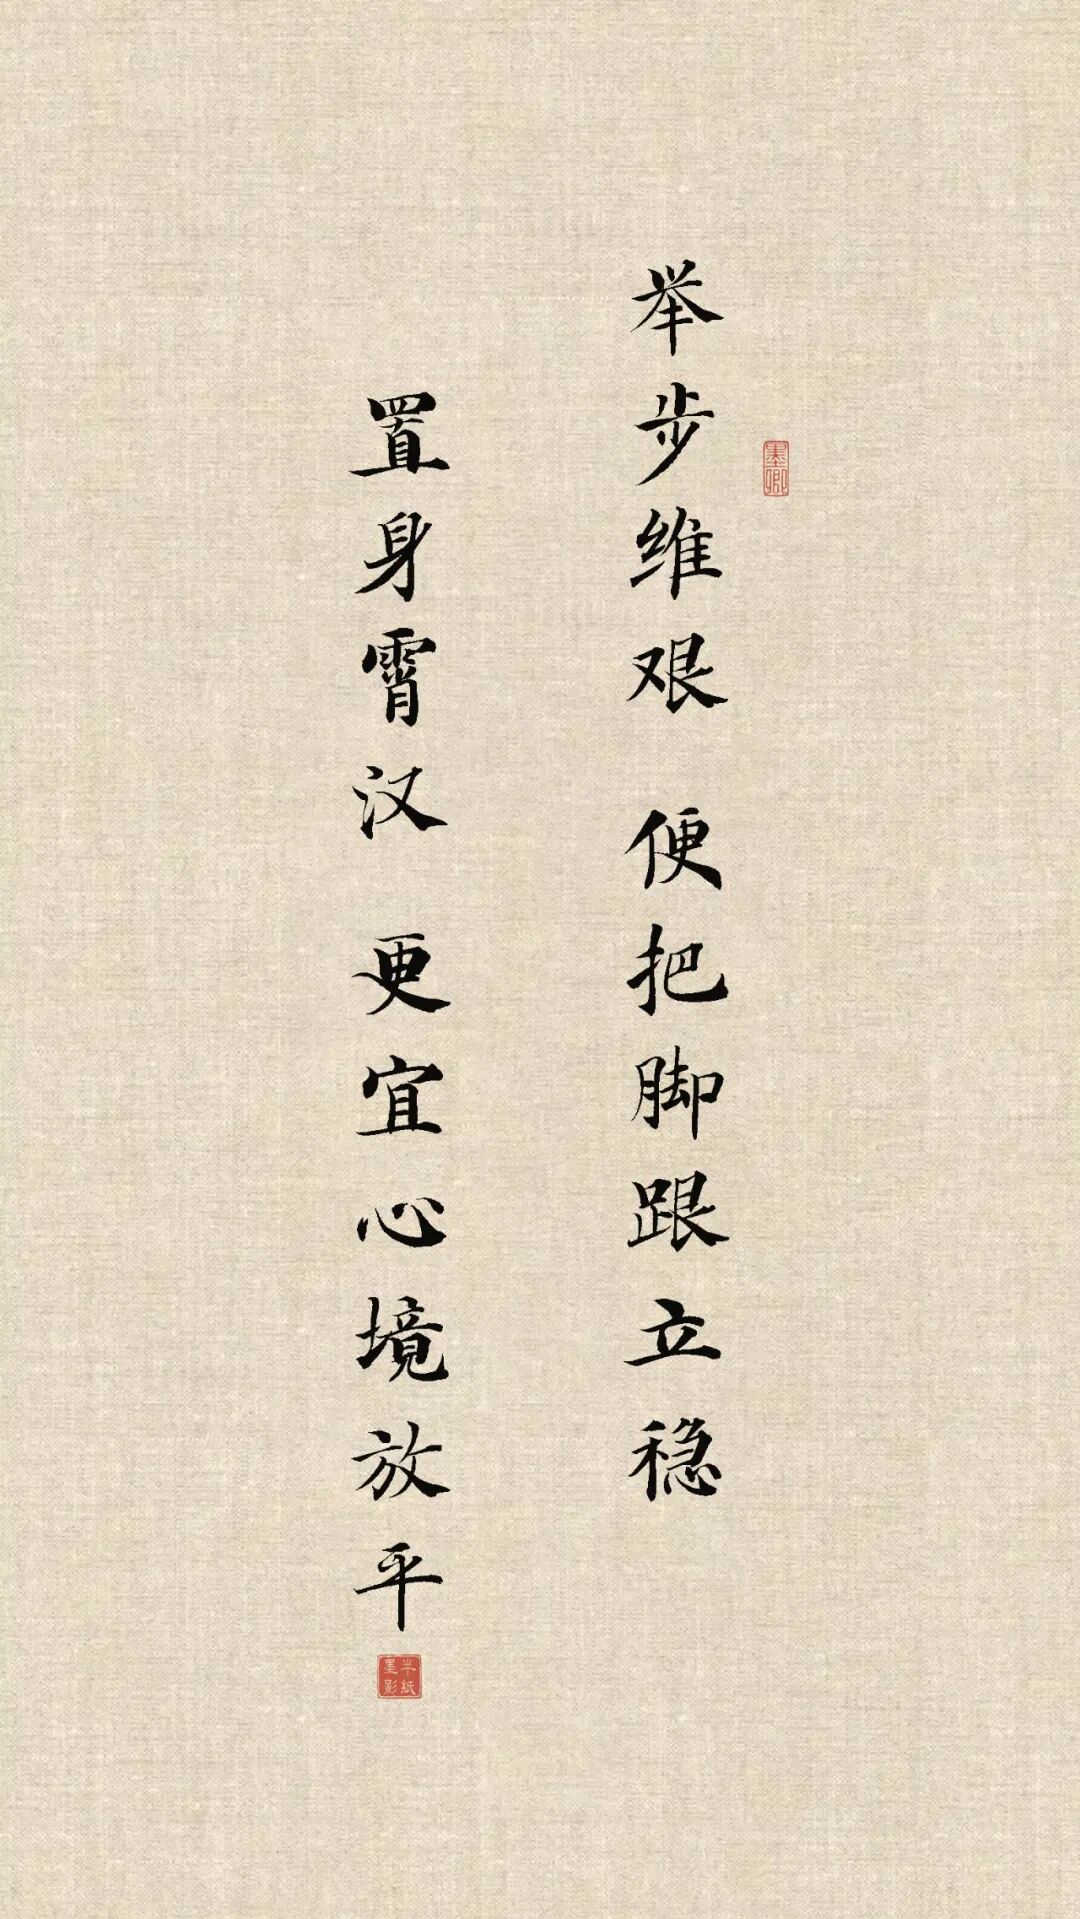 举步维艰 便把脚跟立稳
墨卿
置身霄汉 更宜心境放平
半纸墨影